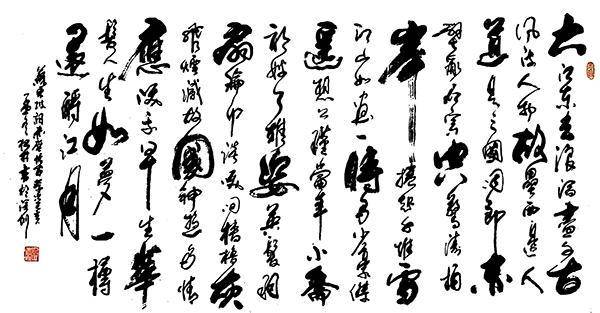 大江東去浪淘盡千古
風流人物故壘西邊人
道是三國周郎赤
壁亂石穿空驚濤拍
岸捲起千堆雪
江山如畫一時多少豪傑
遥想公瑾當年小喬
初嫁了雄姿英發羽
扇綸巾談笑間檣櫓灰
飛煙滅故國神遊多情
應笑我早生華
髮人生如夢一樽
還酹江月
蘇東坡詞念奴嬌赤壁懷古
書於深圳